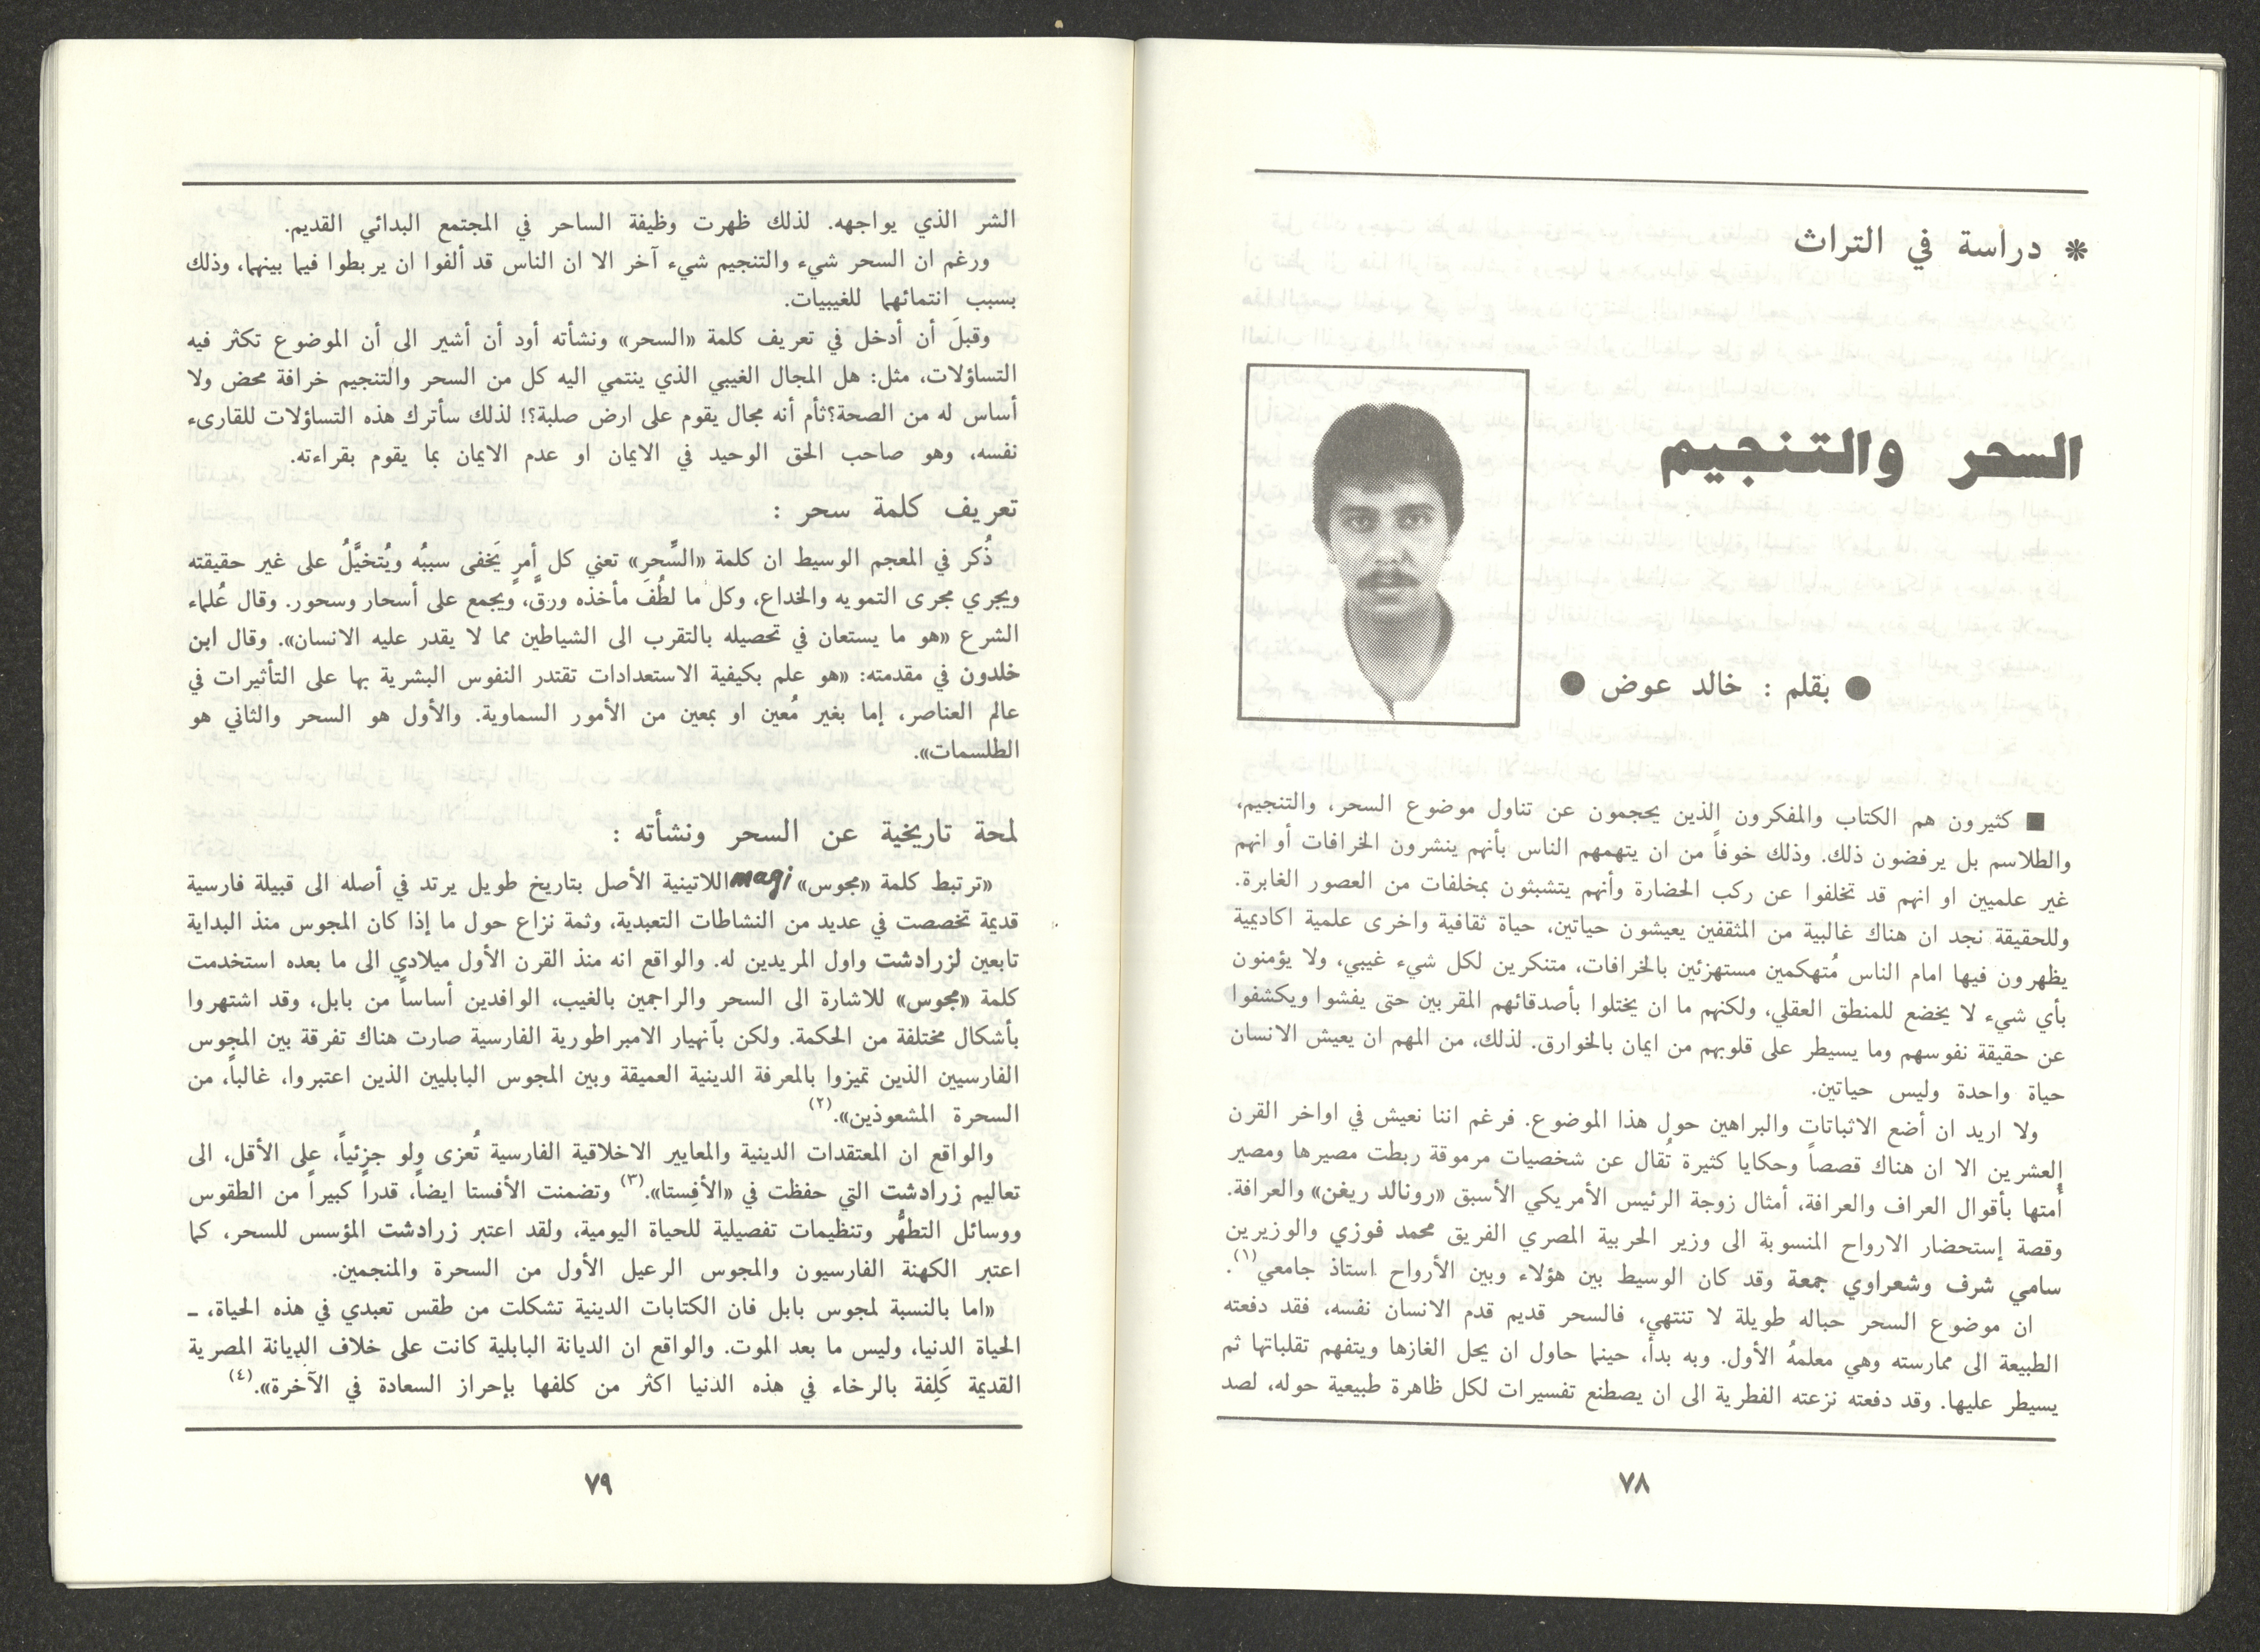 * دراسة في التراث
السحر والتنجيم
● بقلم : خالد عوض ●
■ كثيرون هم الكتاب والمفكرون الذين يحجمون عن تناول موضوع السحر، والتنجيم،
والطلاسم بل يرفضون ذلك. وذلك خوفاً من ان يتهمهم الناس بأنهم ينشرون الخرافات أو انهم
غير علميين او انهم قد تخلفوا عن ركب الحضارة وأنهم يتشبثون بمخلفات من العصور الغابرة.
وللحقيقة نجد ان هناك غالبية من المثقفين يعيشون حياتين، حياة ثقافية واخرى علمية اكاديمية
يظهرون فيها امام الناس مُتهكمين مستهزئين بالخرافات، متنكرين لكل شيء غيبي، ولا يؤمنون
بأي شيء لا يخضع للمنطق العقلي، ولكنهم ما ان يختلوا بأصدقائهم المقربين حتى يفشوا ويكشفوا
عن حقيقة نفوسهم وما يسيطر على قلوبهم من ايمان بالخوارق. لذلك، من المهم ان يعيش الانسان
حياة واحدة وليس حياتين.
ولا اريد ان أضع الاثباتات والبراهين حول هذا الموضوع. فرغم اننا نعيش في اواخر القرن
العشرين الا ان هناك قصصاً وحكايا كثيرة تُقال عن شخصيات مرموقة ربطت مصيرها ومصير
أمتها بأقوال العراف والعرافة، أمثال زوجة الرئيس الأمريكي الأسبق «رونالد ريغن» والعرافة.
وقصة إستحضار الارواح المنسوبة الى وزير الحربية المصري الفريق محمد فوزي والوزيرين
سامي شرف وشعراوي جمعة وقد كان الوسيط بين هؤلاء وبين الأرواح استاذ جامعي(١).
ان موضوع السحر حباله طويلة لا تنتهي، فالسحر قديم قدم الانسان نفسه، فقد دفعته
الطبيعة الى ممارسته وهي معلمهُ الأول. وبه بدأ، حينما حاول ان يحل الغازها ويتفهم تقلباتها ثم
يسيطر عليها. وقد دفعته نزعته الفطرية الى ان يصطنع تفسيرات لكل ظاهرة طبيعية حوله، لصد
٧٨
الشر الذي يواجهه. لذلك ظهرت وظيفة الساحر في المجتمع البدائي القديم.
ورغم ان السحر شيء والتنجيم شيء آخر الا ان الناس قد ألفوا ان يربطوا فيما بينهما، وذلك
بسبب انتمائهما للغيبيات.
وقبلَ أن أدخل في تعريف كلمة «السحر» ونشأته أود أن أشير الى أن الموضوع تكثر فيه
التساؤلات، مثل: هل المجال الغيبي الذي ينتمي اليه كل من السحر والتنجيم خرافة محض ولا
أساس له من الصحة؟ثأم أنه مجال يقوم على ارض صلبة؟! لذلك سأترك هذه التساؤلات للقارىء
نفسه، وهو صاحب الحق الوحيد في الايمان او عدم الايمان بما يقوم بقراءته.
تعريف كلمة سحر :
ذُكر في المعجم الوسيط ان كلمة «السِّحرِ» تعني كل أمرٍ يَخفى سببُه ويُتخيَّلُ على غير حقيقته
ويجري مجرى التمويه والخداع، وكل ما لطُفَ مأخذه ورقَّ، ويجمع على أسحار وسحور. وقال عُلماء
الشرع «هو ما يستعان في تحصيله بالتقرب الى الشياطين مما لا يقدر عليه الانسان». وقال ابن
خلدون في مقدمته: «هو علم بكيفية الاستعدادات تقتدر النفوس البشرية بها على التأثيرات في
عالم العناصر، إما بغير مُعين او بمعين من الأمور السماوية. والأول هو السحر والثاني هو
الطلسمات».
لمحة تاريخية عن السحر ونشأته :
«ترتبط كلمة «مجوس» magi اللاتينية الأصل بتاريخ طويل يرتد في أصله الى قبيلة فارسية
قديمة تخصصت في عديد من النشاطات التعبدية، وثمة نزاع حول ما إذا كان المجوس منذ البداية
تابعين لزرادشت واول المريدين له. والواقع انه منذ القرن الأول ميلادي الى ما بعده استخدمت
كلمة «مجوس» للاشارة الى السحر والراجمين بالغيب، الوافدين أساساً من بابل، وقد اشتهروا
بأشكال مختلفة من الحكمة. ولكن بأنهيار الامبراطورية الفارسية صارت هناك تفرقة بين المجوس
الفارسيين الذين تميزوا بالمعرفة الدينية العميقة وبين المجوس البابليين الذين اعتبروا، غالباً، من
السحرة المشعوذين».(٢)
والواقع ان المعتقدات الدينية والمعايير الاخلاقية الفارسية تُعزى ولو جزئياً، على الأقل، الى
تعاليم زرادشت التي حفظت في «الأفِستا».(٣) وتضمنت الأفستا ايضاً، قدراً كبيراً من الطقوس
ووسائل التطهُّر وتنظيمات تفصيلية للحياة اليومية، ولقد اعتبر زرادشت المؤسس للسحر، كما
اعتبر الكهنة الفارسيون والمجوس الرعيل الأول من السحرة والمنجمين.
«اما بالنسبة لمجوس بابل فان الكتابات الدينية تشكلت من طقس تعبدي في هذه الحياة، ــ
الحياة الدنيا، وليس ما بعد الموت. والواقع ان الديانة البابلية كانت على خلاف الديانة المصرية
القديمة كَلِفة بالرخاء في هذه الدنيا اكثر من كلفها بإحراز السعادة في الآخرة».(٤)
٧٩